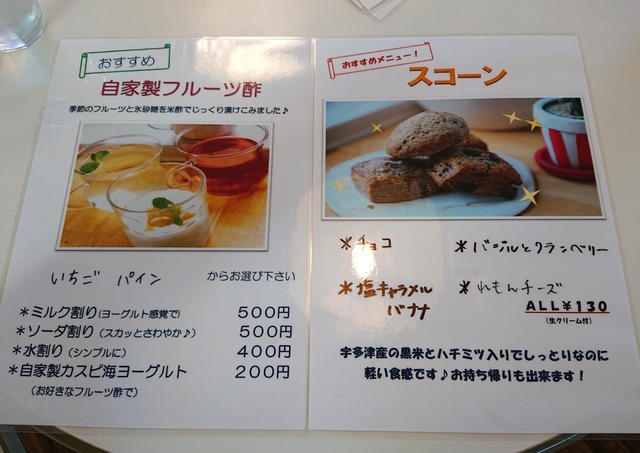 おすすめ
自家製フルーツ酢
季節のフルーツと氷砂糖を米酢でじっくり漬けこみました♪
いちご パイン からお選び下さい
＊ミルク割り(ヨーグルト感覚で) 500円
＊ソーダ割り(スカッとさわやか♪) 500円
＊水割り(シンプルに) 400円
＊自家製カスピ海ヨーグルト 200円
(お好きなフルーツ酢で)
おすすめメニュー！
スコーン
＊チョコ
＊バジルとクランベリー
＊塩キャラメル
バナナ
＊れもんチーズ
ALL¥130
(生クリーム付)
宇多津産の黒米とハチミツ入りでしっとりなのに
軽い食感です♪お持ち帰りも出来ます！